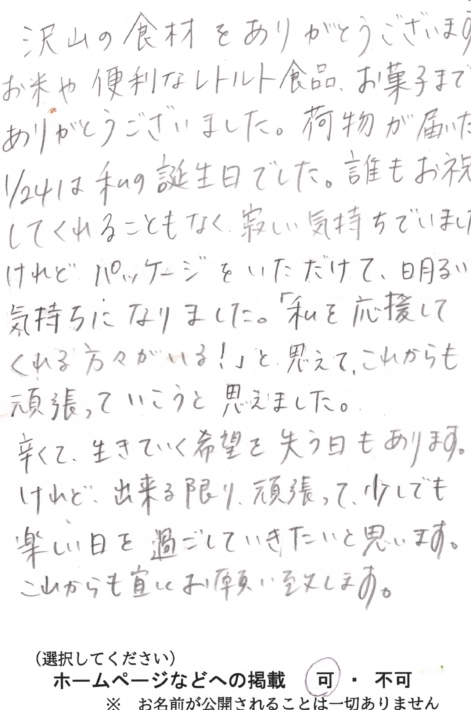 沢山の食材をありがとうございます
お米や便利なレトルト食品、お菓子まで
ありがとうございました。荷物が届いた
1/24は私の誕生日でした。誰もお祝
してくれることもなく、寂しい気持ちでいまし
けれど、パッケージをいただけて、明るい
気持ちになりました。「私を応援して
くれる方々がいる!」と思えて、これからも
頑張っていこうと思えました。
辛くて、生きていく希望を失う日もあります。
けれど、出来る限り、頑張って、少しでも
楽しい日を過ごしていきたいと思います。
これからも宜しくお願い致します。
（選択してください）
ホームページなどへの掲載　可 ・ 不可
※　お名前が公開されることは一切ありません